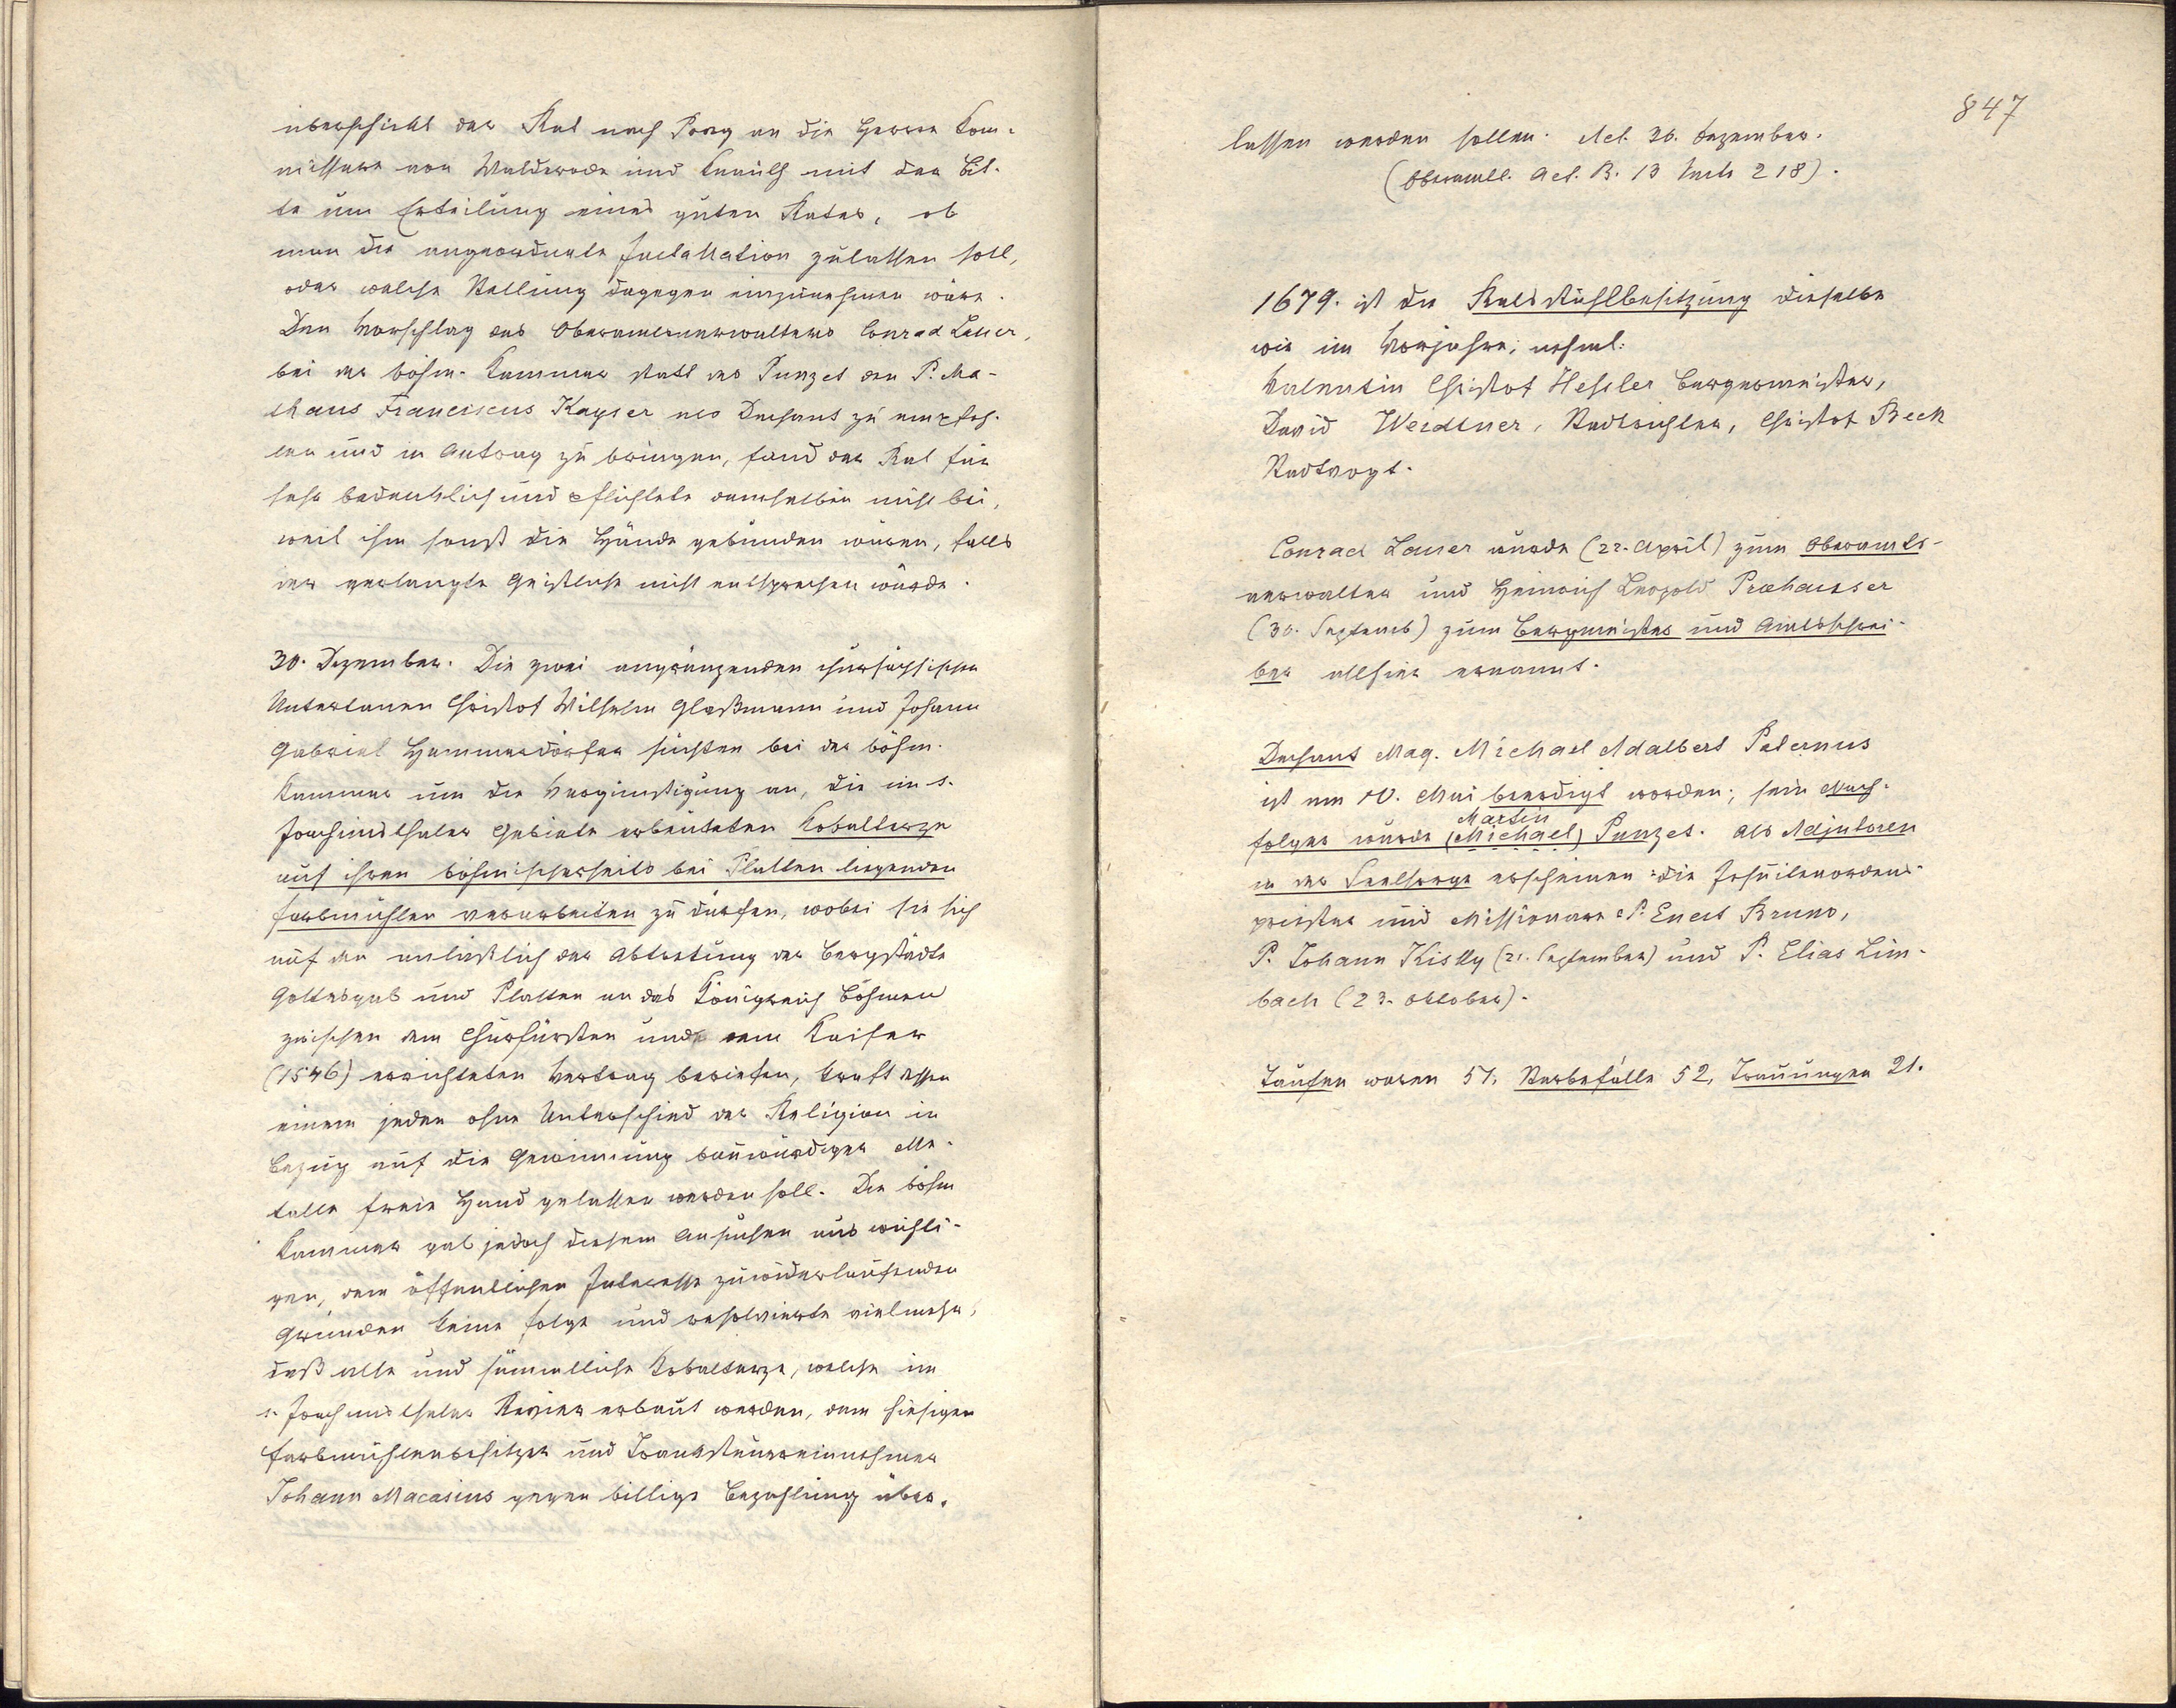 überschickt der Rat nach Prag an die Herren Kom-
missare von Walderode und Knaulh mit der Bit-
te um Erteilung eines guten Rates, ob
man die angeordnete Installation zulassen soll,
oder welche Stellung dagegen einzunehmen wäre.
Den Vorschlag des Oberamtsverwalters Conrad Lauer,
bei der böhm. Kammer statt des Punzet den P. Ma-
thaus Franciscus Kayser als Dechant zu empfeh-
len und in Antrag zu bringen, fand der Rat für
sehr bedenklich und pflichtete demselben nicht bei,
weil ihm sonst die Hände gebunden wären, falls
der verlangte Geistliche nicht entsprechen würde.
30. Dezember. Die zwei angränzenden chursächsischen
Untertanen Christof Wilhelm Glaßmann und Johann
Gabriel Hammerdörfer suchten bei der böhm.
Kammer um die Vergünstigung an, die im s.
Joachimsthaler Gebiete erbeuteten Kobalterze
auf ihren böhmischerseits bei Platten liegenden
Farbmühlen verarbeiten zu dürfen, wobei sie sich
auf den anläßlich der Abtretung der Bergstädte
Gottesgab und Platten an das Königreich Böhmen
zwischen dem Churfürsten und dem Kaiser
(1546) errichteten Vertrag beriefen, kraft dessen
einem jeden ohne Unterschied der Religion in
Bezug auf die Gewinnung bauwürdiger Me-
talle freie Hand gelassen werden soll. Die böhm
Kammer gab jedoch diesem Ansuchen aus wichti-
gen, dem öffentlichen Interesse zuwiderlaufenden
Gründen keine Folge und resolvierte vielmehr,
daß alle und sämmtliche Kobalterze, welche im
s. Joachimsthaler Revier erbaut werden, dem hiesigen
Farbmühlenbesitzer und Tranksteuereinnehmer
Johann Macasius gegen billige Bezahlung über-
847
lassen werden sollen. Act. 30. Dezember.
(Oberamtl. Act. B. 13 Nr 218).
1679. ist die Ratsstuhlbesitzung dieselbe
wie im Vorjahre; nehml:
Valentin Christof Hessler Burgermeister,
David Weidtner, Stadtrichter, Christof Beck
Stadtvogt.
Conrad Lauer wurde (22. April) zum Oberamts-
verwalter und Heinrich Leopold Prœhausser
(30. Septemb) zum Bergmeister und Amtsschrei-
ber allhier ernannt.
Dechant Mag. Michael Adalbert Paternus
ist am 10. Mai beerdigt worden; sein Nach-
Martin
folger wurde (Michael) Punzet. Als Adjutoren
in der Seelsorge erscheinen die Jesuitenordens-
priester und Missionare P. Enert Bruno,
P. Johann Kisky (21. September) und P. Elias Lim-
bach (23. Oktober).
Taufen waren 51, Sterbefälle 52, Trauungen 21.